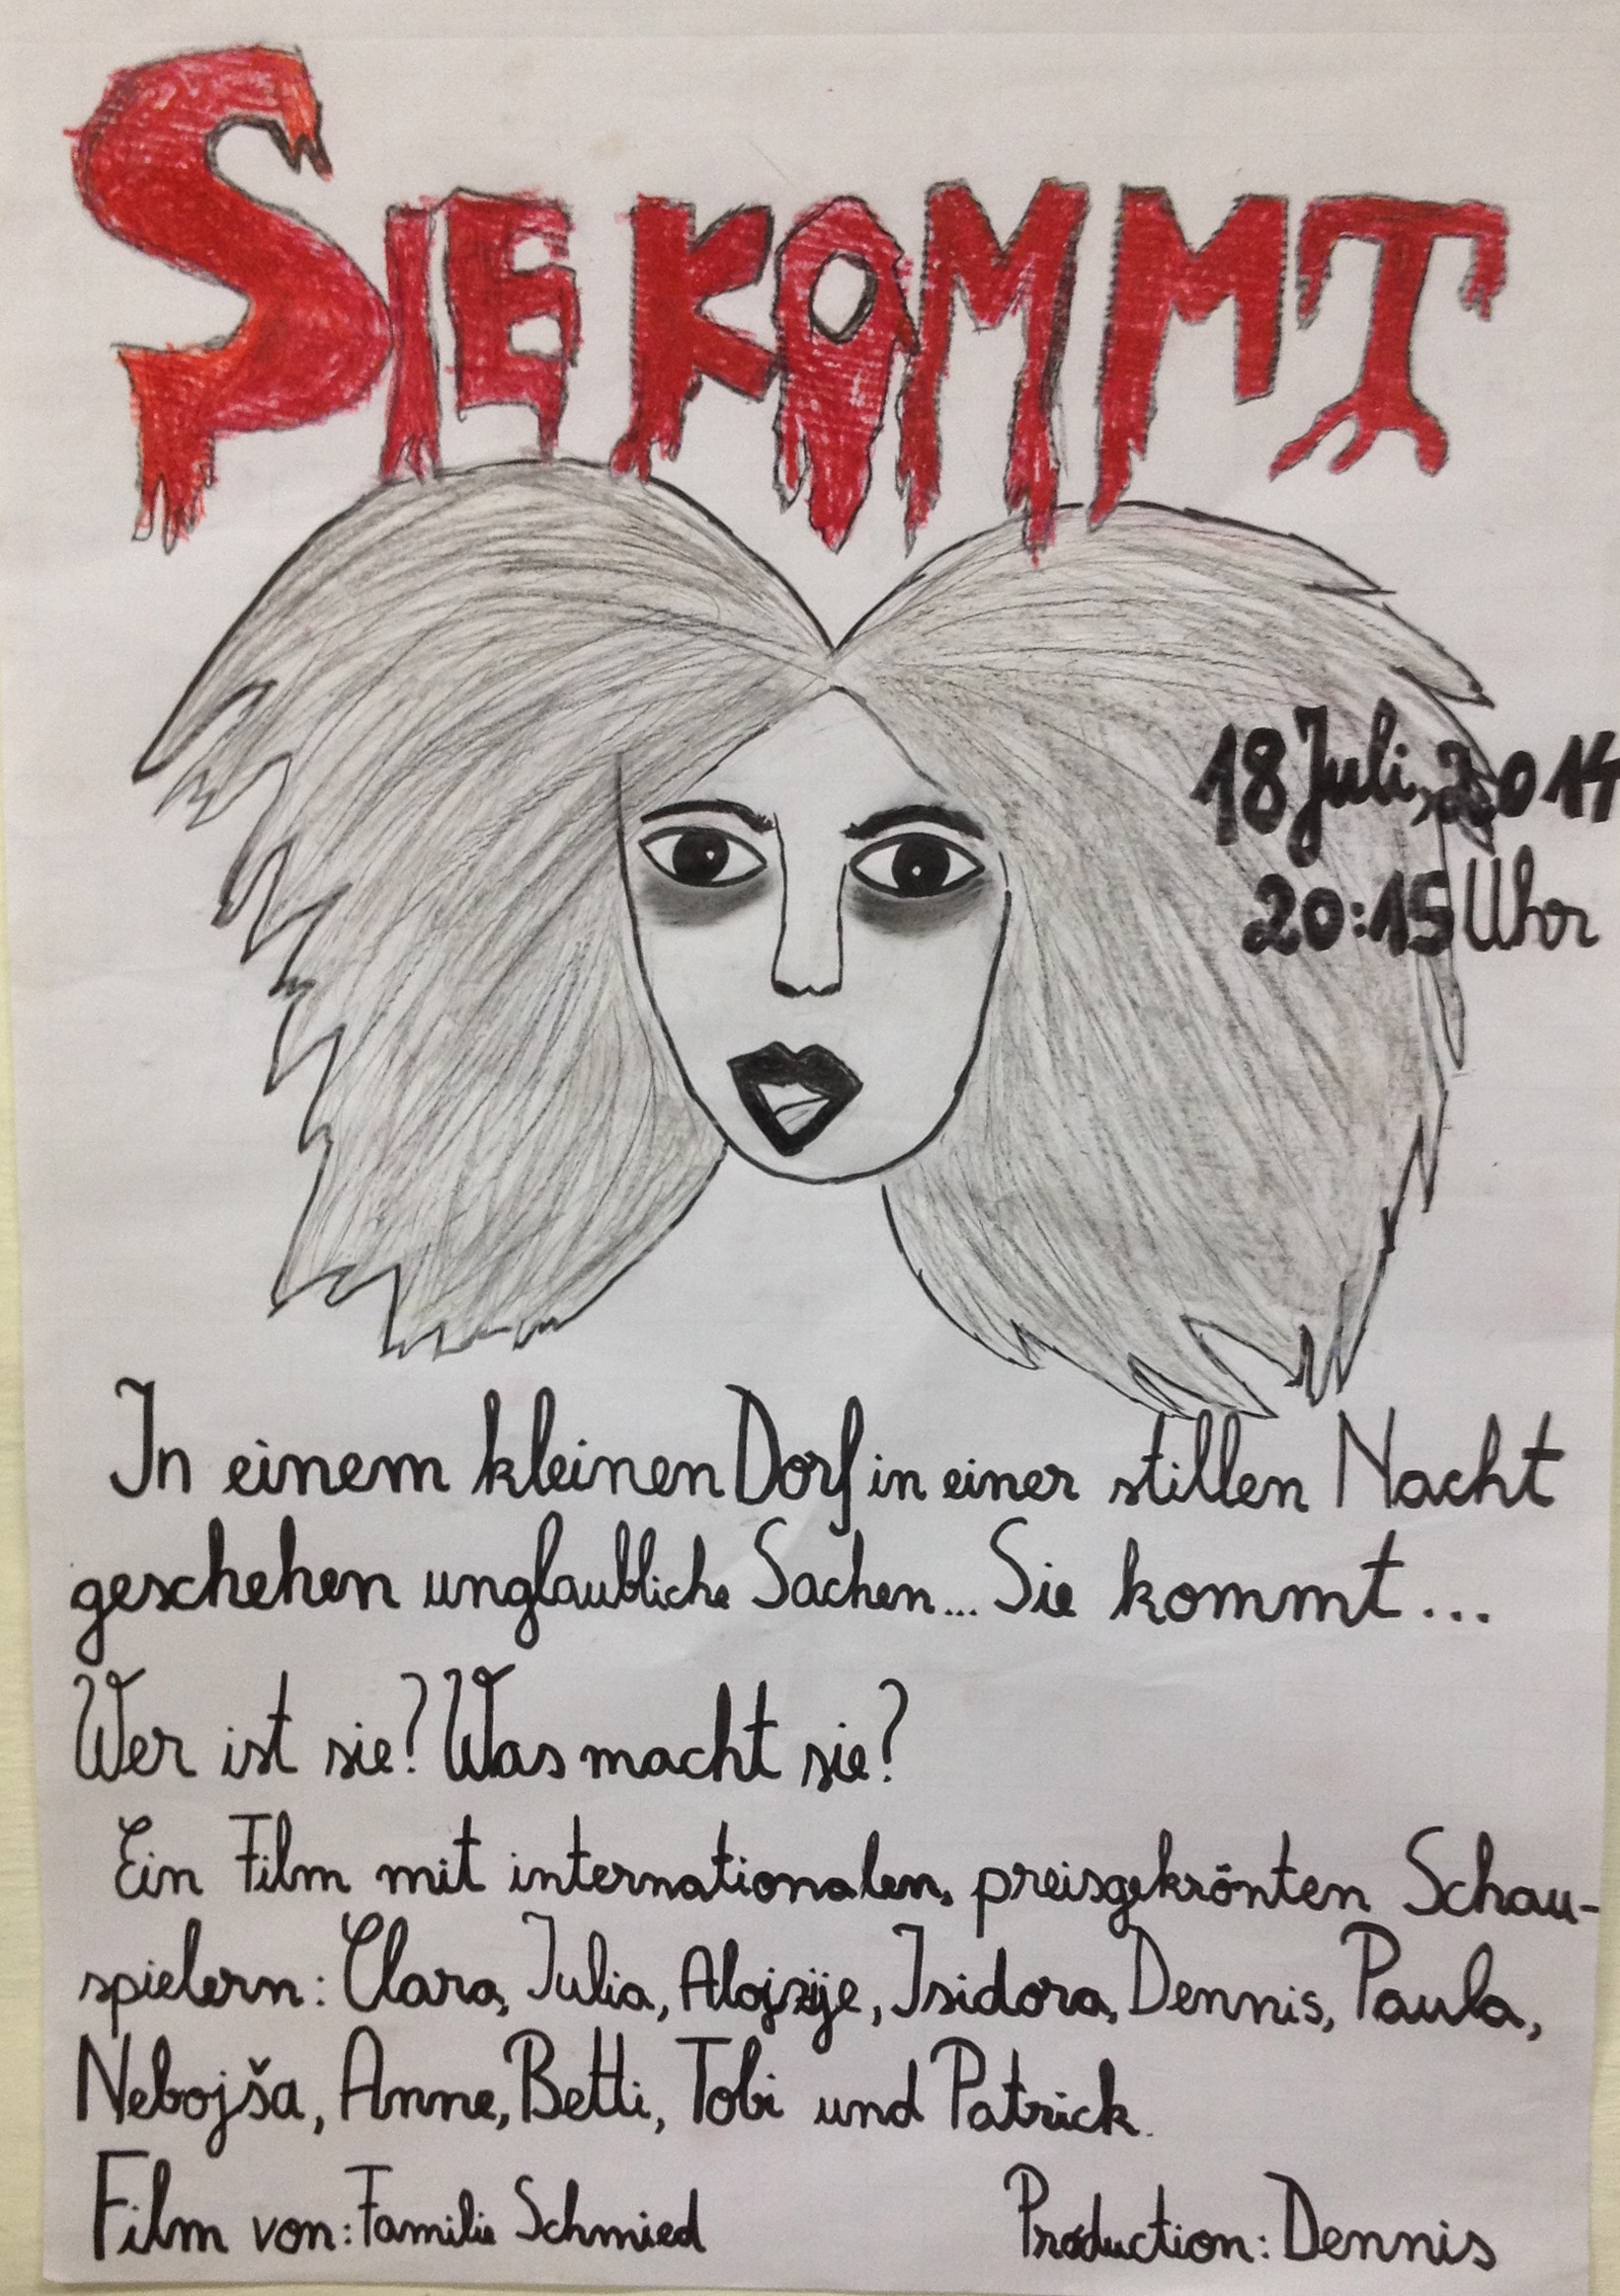 SIE KOMMT
18 Juli, 2014
20:15 Uhr
In einem kleinen Dorf in einer stillen Nacht
geschehen unglaubliche Sachen... Sie kommt...
Wer ist sie? Was macht sie?
Ein Film mit internationalen, preisgekrönten Schau-
spielern: Clara, Julia, Alojzije, Isidora, Dennis, Paula,
Nebojša, Anne, Betti, Tobi und Patrick.
Film von: Familie Schmied
Production: Dennis